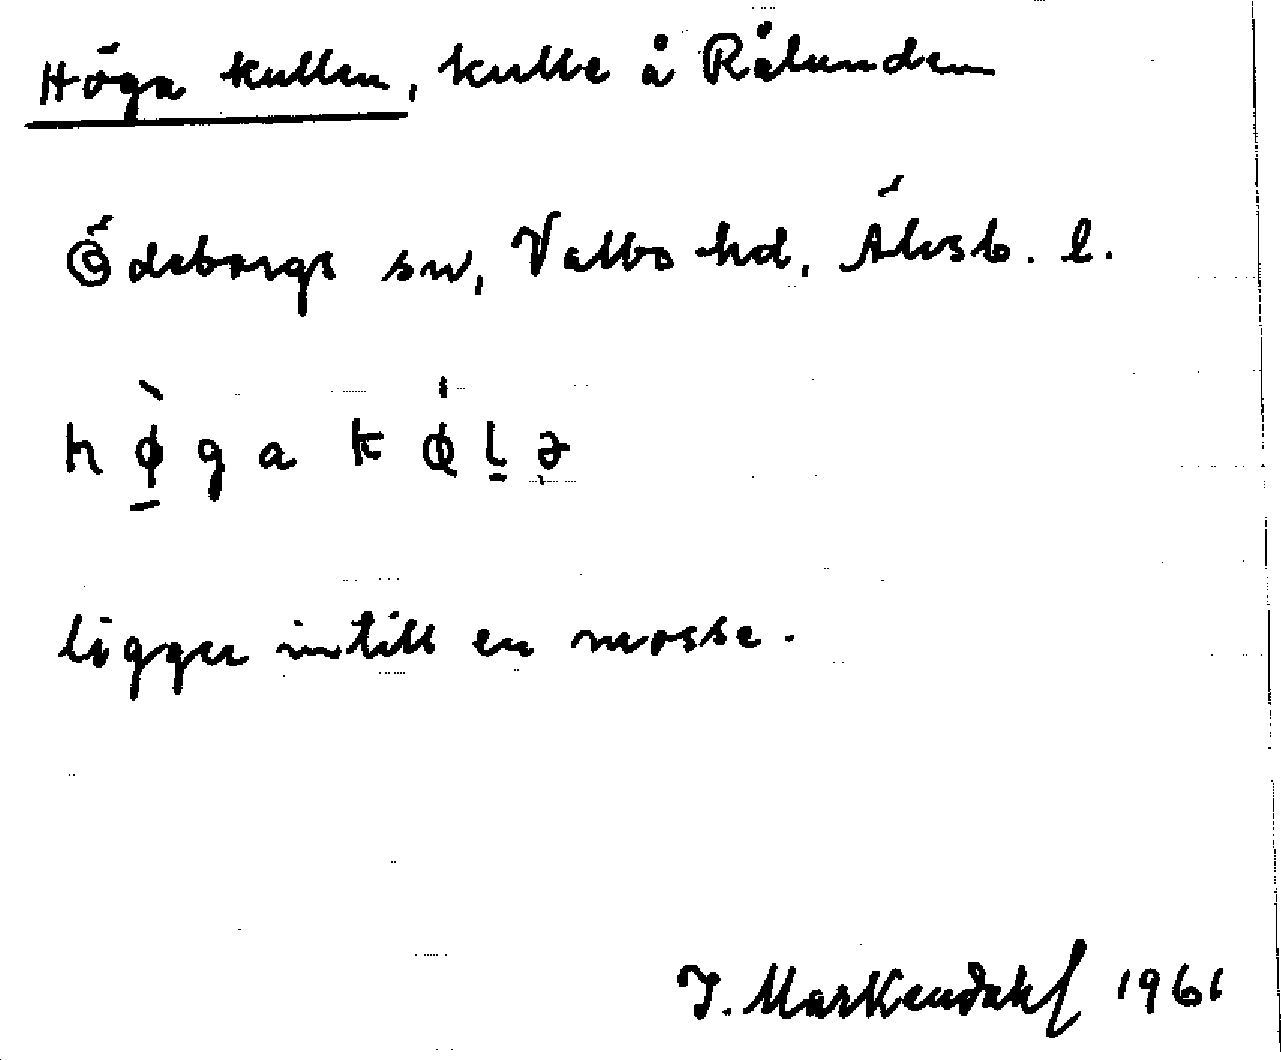 Höga kullen, kulle å Rålunden
Ödeborgs sn, Valbo hd, Älvsb. l.
hø̱̀ga kǿḻə
ligger intill en mosse.
I. Markendahl 1961